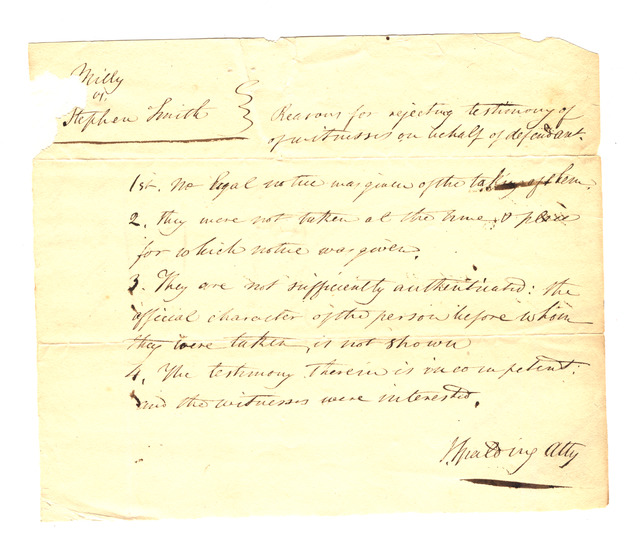 Milly
vs.
Stephen Smith
Reasons for rejecting testimony of
of witnesses on behalf of defendant.
1st. No legal notice was given of the taking of them.
2. They were not taken at the time & place
for which notice was given.
3. They are not sufficiently authenticated: the
official character of the person before whom
they were taken, is not shown
4. The testimony therein is incompetent:
and the witnesses were interested.
Spalding Atty